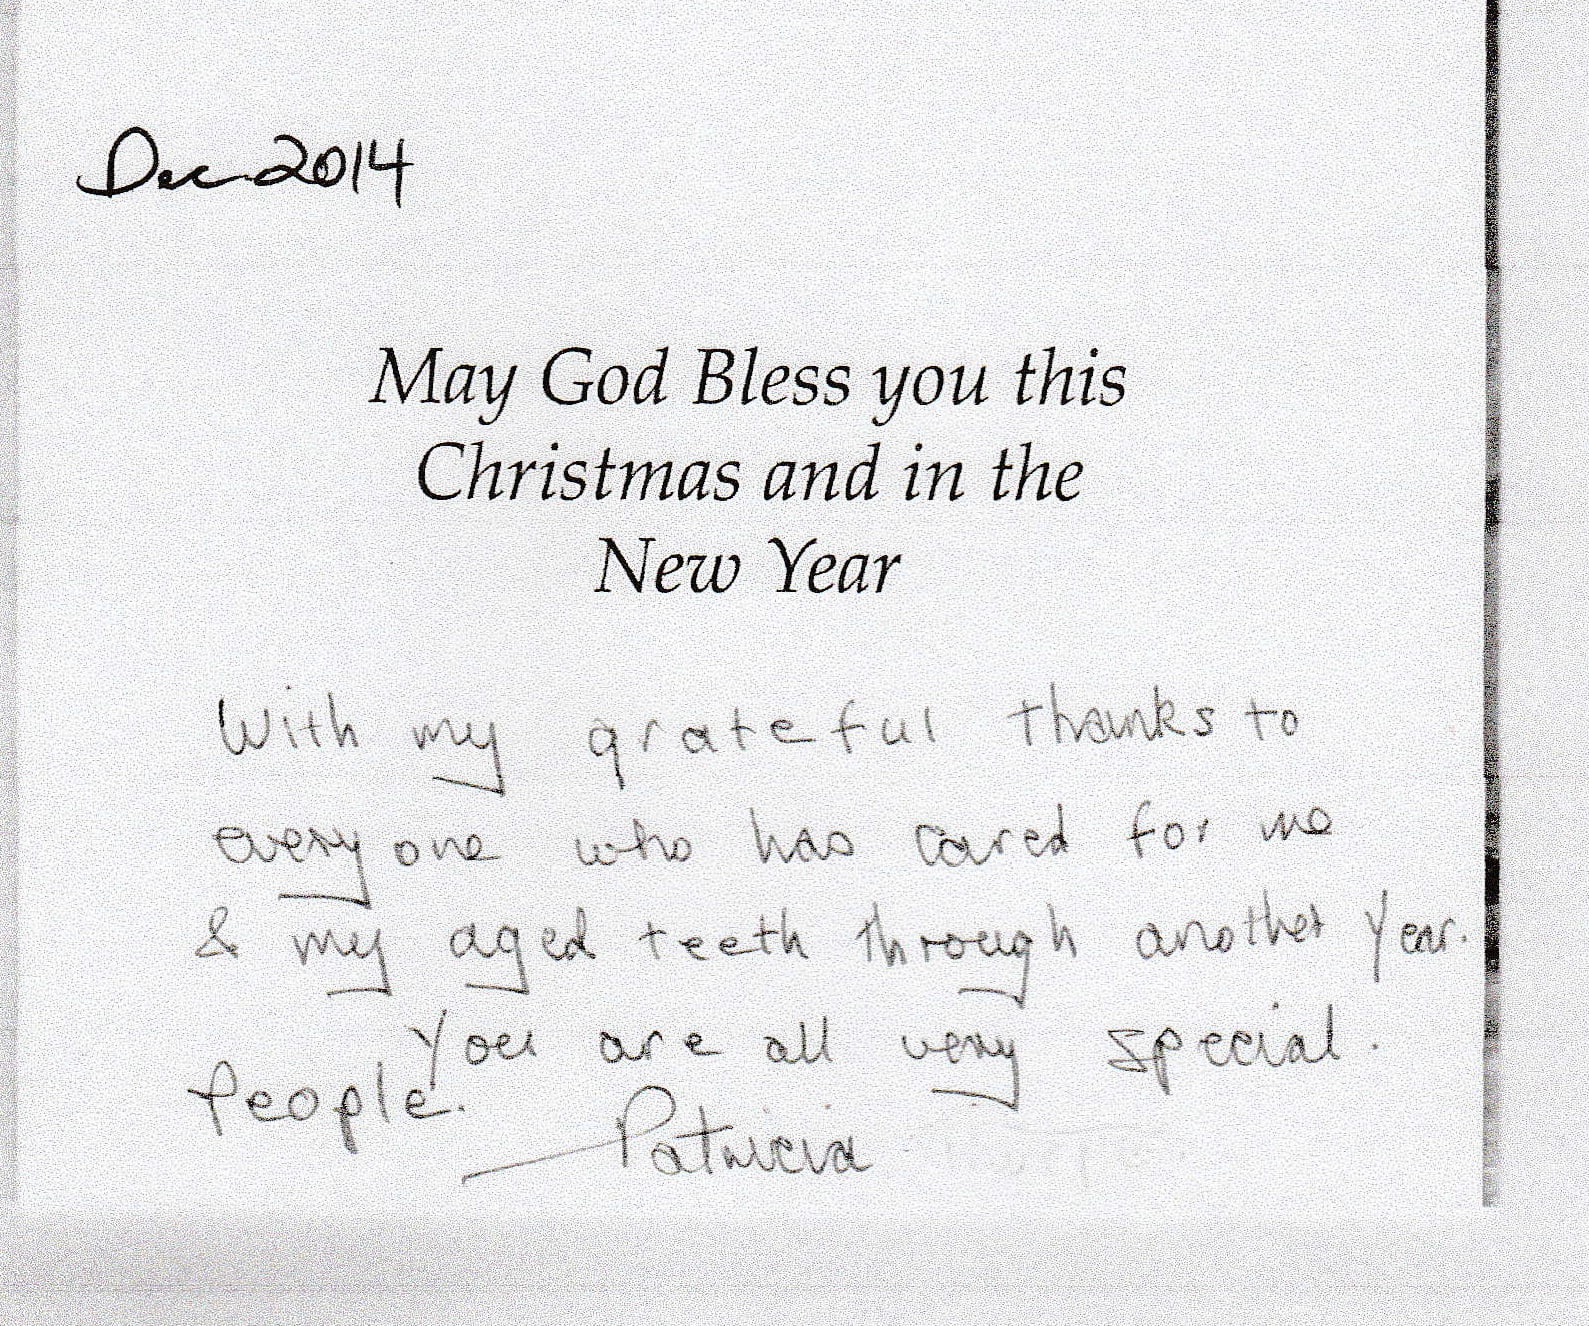 Dec 2014
May God Bless you this
Christmas and in the
New Year
With my grateful thanks to
everyone who has cared for me
& my aged teeth through another year.
You are all very special.
People.
Patricia